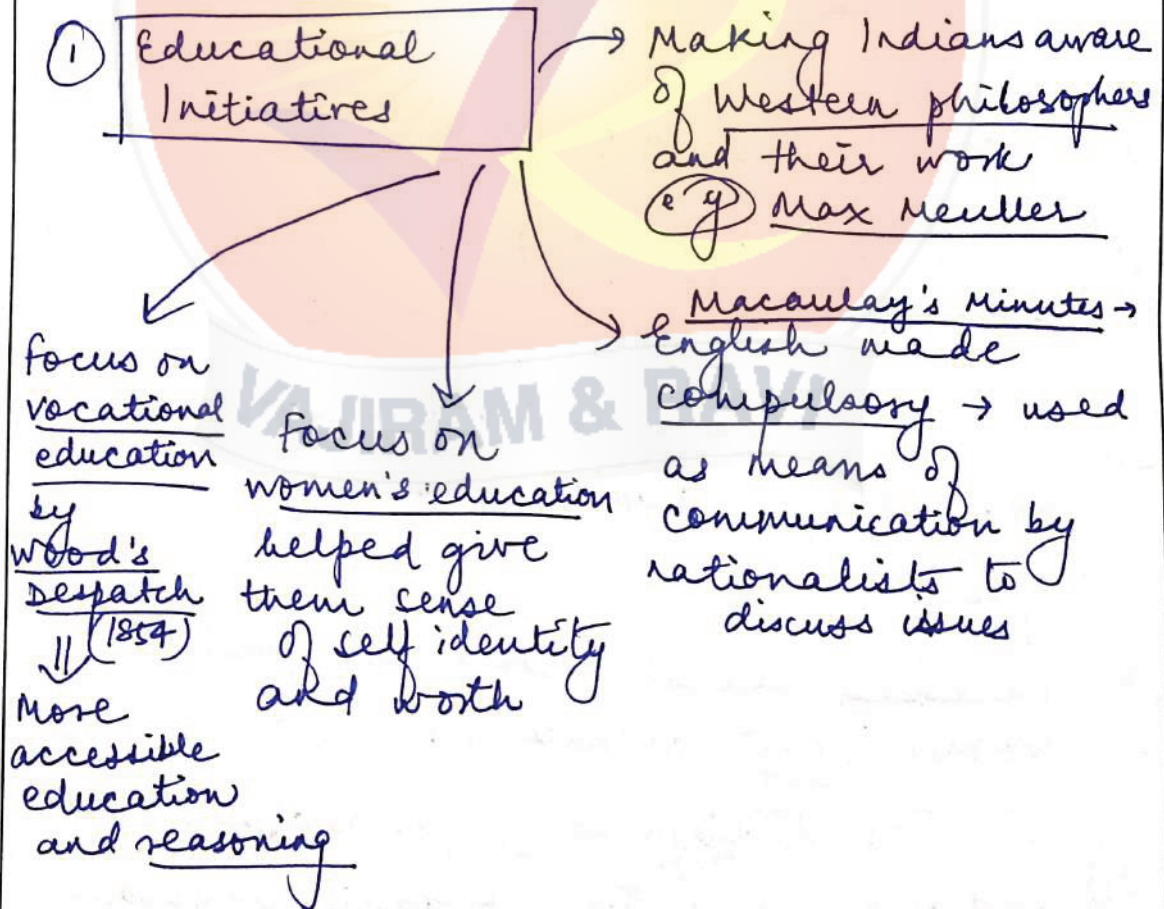 ① Educational
Initiatives
→ Making Indians aware
of Western philosophers
and their work
e.g Max Meuller
Macaulay's Minutes →
English made
compulsory → used
as means of
communication by
rationalists to
discuss issues
Focus on
women's education
helped give
them sense
of self identity
and worth
Focus on
vocational
education
by
Wood's
Despatch
(1854)
⇓
More
accessible
education
and reasoning
VAJIRAM & RAVI